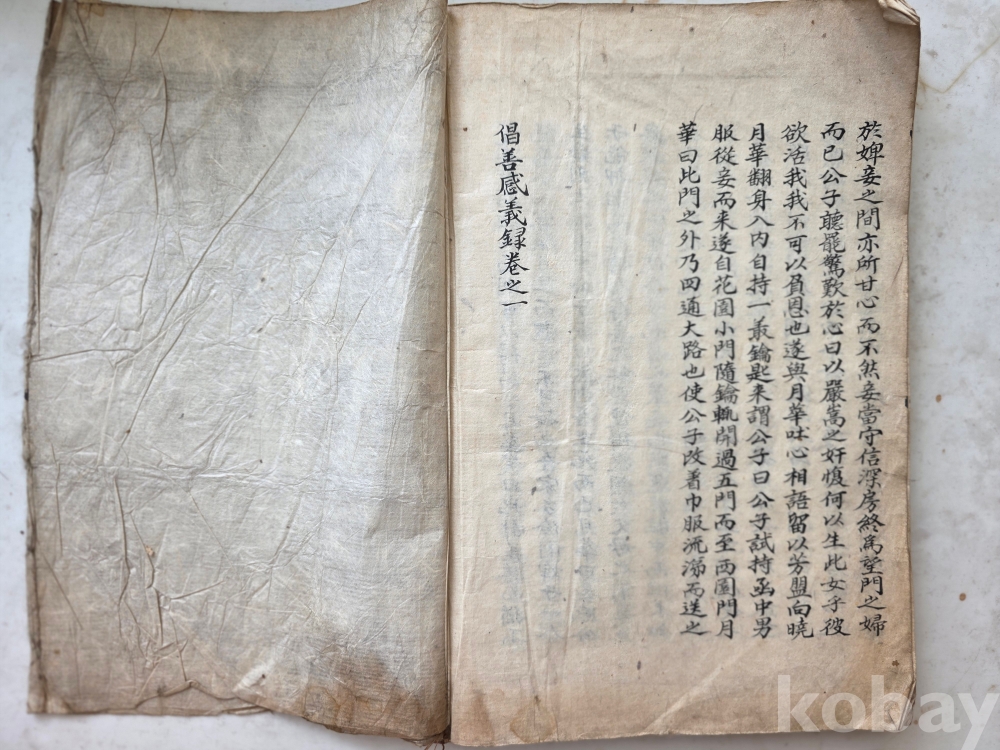 於婢妾之間亦所甘心而不然妾當守信深房終爲望門之婦
而已公子聽罷驚歎於心曰以嚴嵩之奸愎何以生此女乎彼
欲活我我不可以負恩也遂與月華吐心相語留以芳盟向曉
月華翻身入內自持一叢鑰匙来謂公子曰公子試持函中男
服從妾而来遂自花園小門隨鑰輒開過五門而至西園門月
華曰此門之外乃四通大路也使公子改着巾服流涕而送之
倡善感義録卷之一
kobay